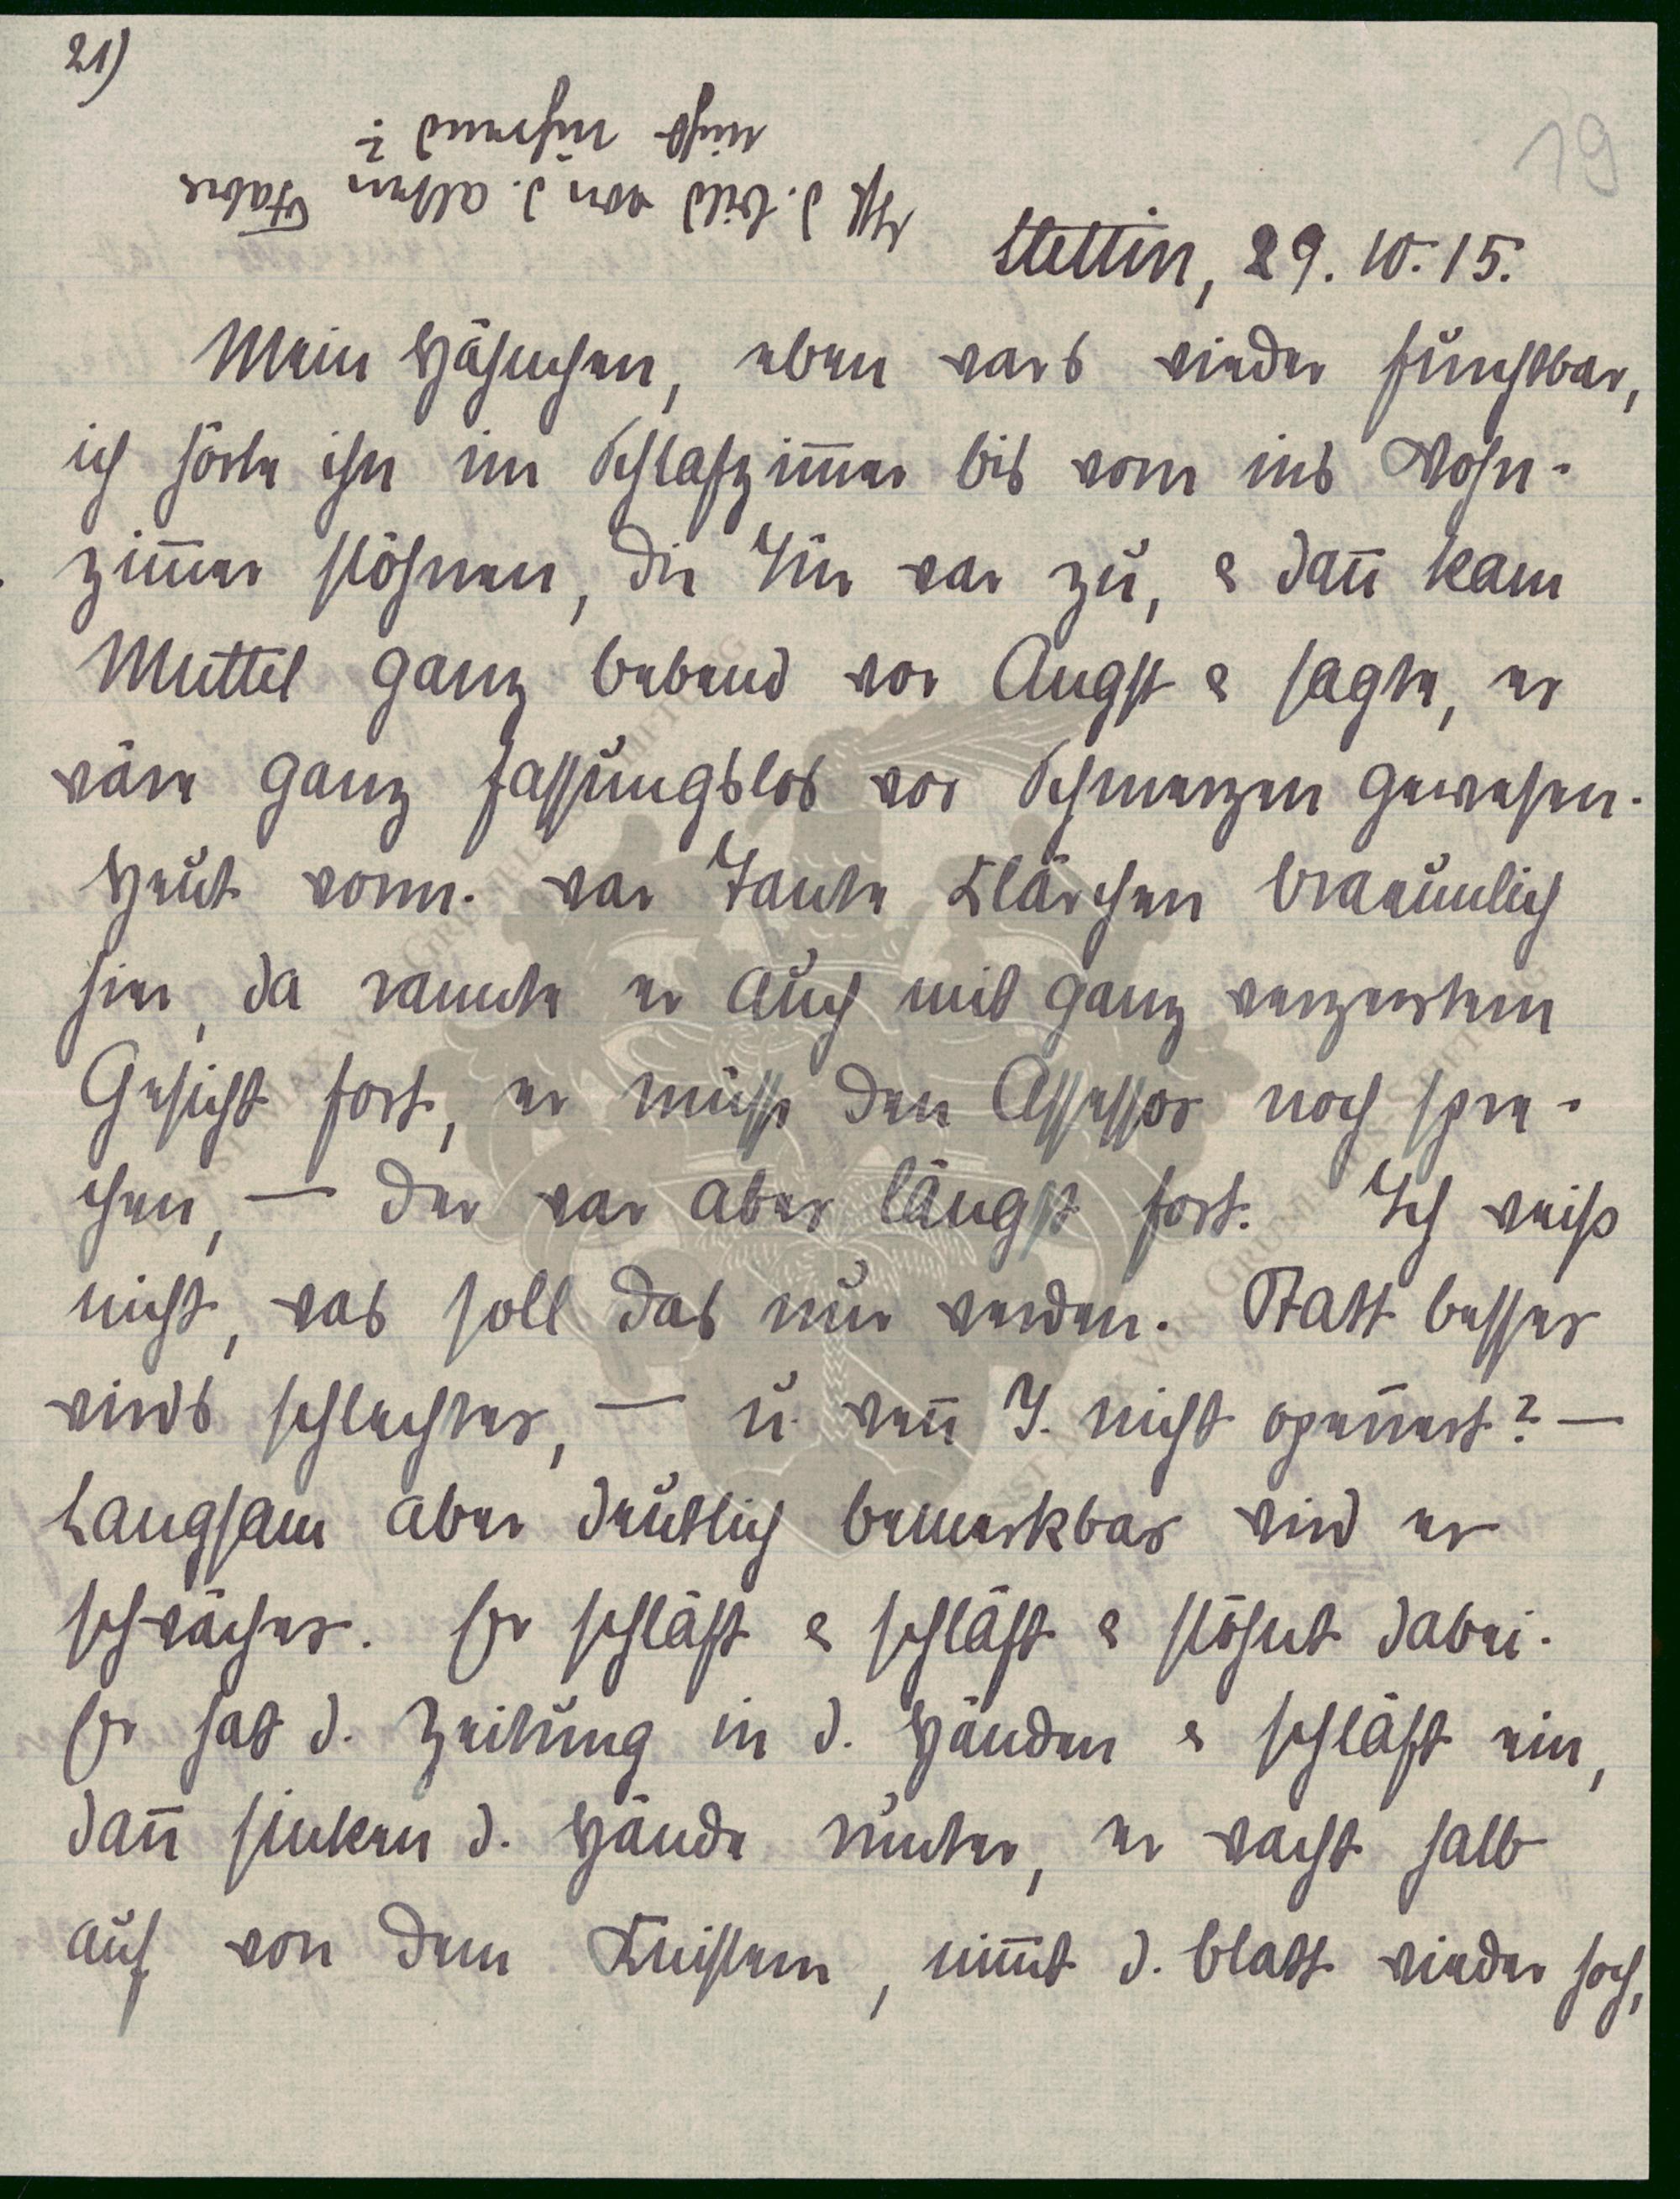 21)
19
Ist d. Bild von d. alten Fabre
nicht rührend?
Stettin, 29.10.15.
Mein Häschen, eben wars wieder furchtbar,
ich hörte ihn im Schlafzim̅er bis vorn ins Wohn-
zim̅er stöhnen, die Tür war zu, & dan̅ kam
Muttel ganz bebend vor Angst & sagte, er
wäre ganz fassungslos vor Schmerzen gewesen.
Heut vorm. war Tante Klärchen Braeunlich
hier, da rannte er auch mit ganz verzerrtem
Gesicht fort, er müsse den Assessor noch spre-
chen, — der war aber längst fort. Ich weiß
nicht, was soll das nur werden. Statt besser
wirds schlechter, — u. wen̅ J. nicht operiert? —
Langsam aber deutlich bemerkbar wird er
schwächer. Er schläft & schläft & stöhnt dabei.
Er hat d. Zeitung in d. Händen & schläft ein,
dan̅ sinken d. Hände runter, er wacht halb
auf von dem Knistern, nim̅t d. Blatt wieder hoch,
ERNST MAX VON GRUMME STIFTUNG
ERNST MAX VON GRUMME STIFTUNG